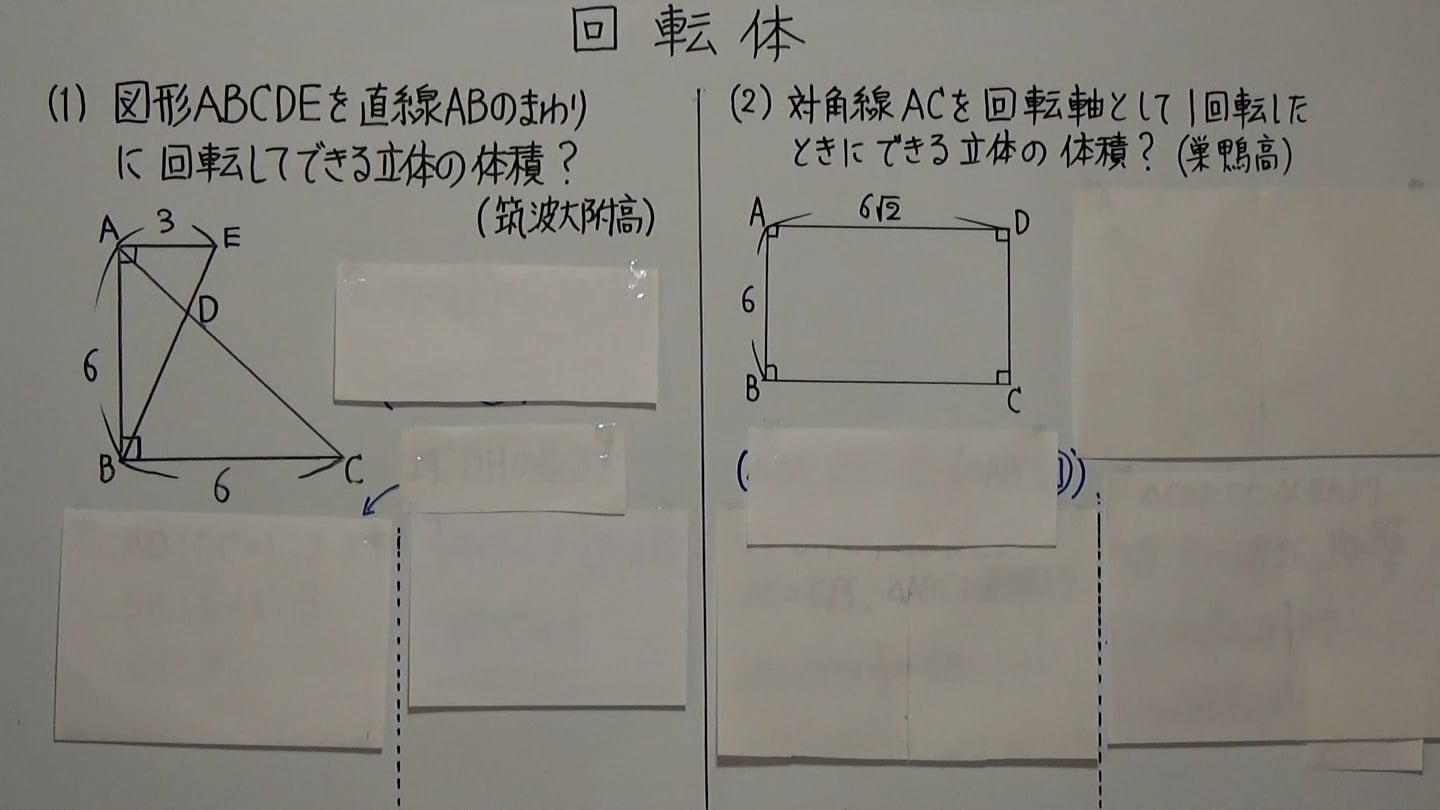 回転体
(1) 図形ABCDEを直線ABのまわり
に回転してできる立体の体積?
(筑波大附高)
A 3 E
D
6
B 6 C
(2) 対角線ACを回転軸として1回転した
ときにできる立体の体積?(巣鴨高)
A 6√2 D
6
B C